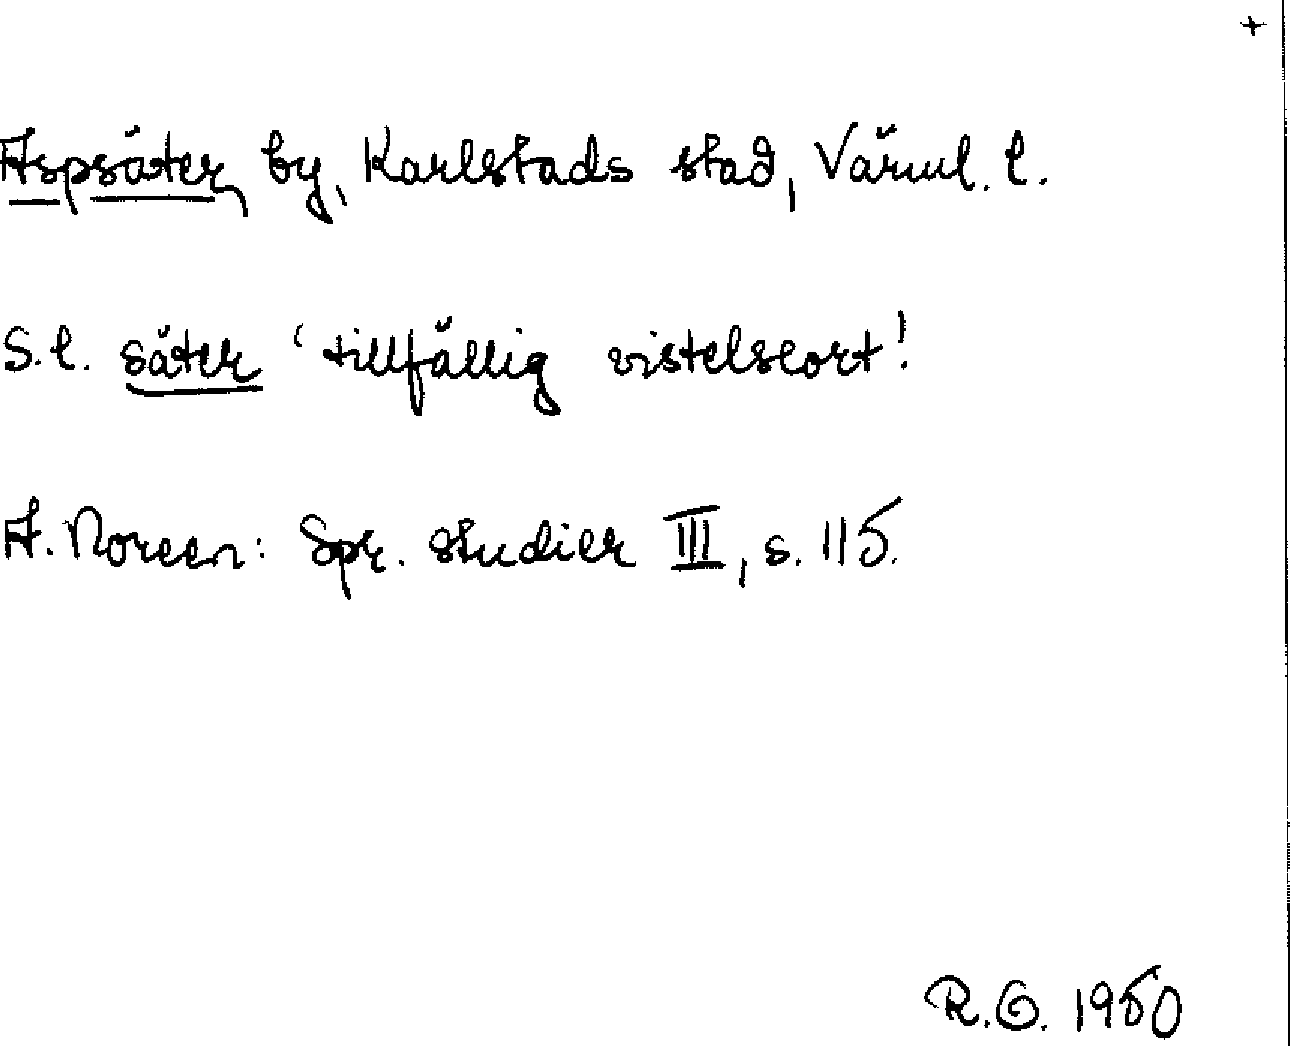 +
Aspsäter, by, Karlstads stad, Värml. l.
S.l. säter 'tillfällig vistelseort'.
A. Noreen: Spr. studier III, s. 115.
R.G. 1950